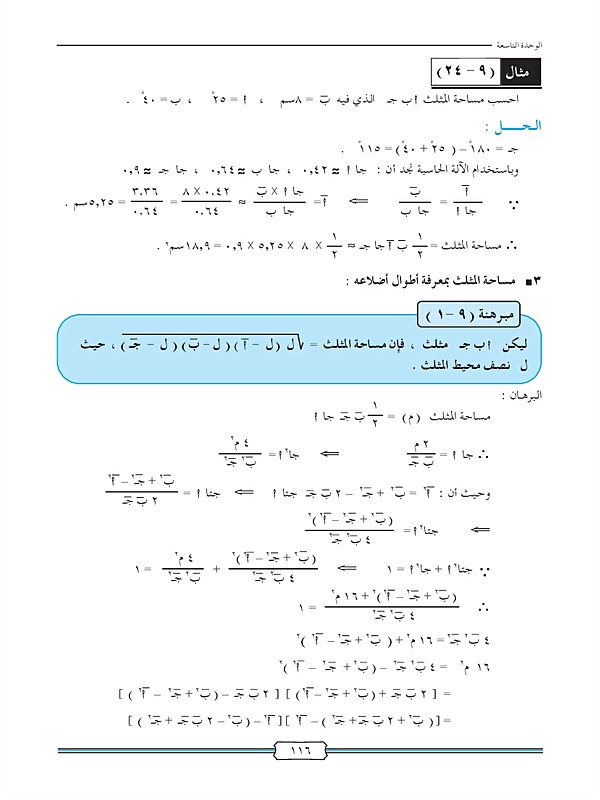 الوحدة التاسعة
مثال (٩ – ٢٤)
احسب مساحة المثلث أ ب جـ الذي فيه ب̅ = ٨سم ، أ = ٢٥° ، ب = ٤٠° .
الحـــل :
جـ = ١٨٠° – ( ٢٥° + ٤٠°) = ١١٥° .
وباستخدام الآلة الحاسبة نجد أن : جا أ ≈ ٠,٤٢ ، جا ب ≈ ٠,٦٤ ، جا جـ ≈ ٠,٩
∵ أ̅ / جا أ = ب̅ / جا ب ⇐ أ̅ = جا أ × ب̅ / جا ب ≈ ٠.٤٢ × ٨ / ٠.٦٤ = ٣.٣٦ / ٠.٦٤ = ٥,٢٥سم .
∴ مساحة المثلث = ١/٢ ب̅ أ̅ جا جـ ≈ ١/٢ × ٨ × ٥,٢٥ × ٠,٩ = ١٨,٩سم٢ .
٣ ■ مساحة المثلث بمعرفة أطوال أضلاعه :
مبرهنة ( ٩ – ١ )
ليكن أ ب جـ مثلث ، فإن مساحة المثلث = √ل (ل – أ̅) (ل – ب̅) (ل – جـ̅) ، حيث
ل نصف محيط المثلث .
البرهان :
مساحة المثلث (م) = ١/٢ ب̅ جـ̅ جا أ
∴ جا أ = ٢ م / ب̅ جـ̅ ⇐ جا٢ أ = ٤ م٢ / ب̅٢ جـ̅٢
وحيث أن : أ̅٢ = ب̅٢ + جـ̅٢ – ٢ ب̅ جـ̅ جتا أ ⇐ جتا أ = ب̅٢ + جـ̅٢ – أ̅٢ / ٢ ب̅ جـ̅
⇐ جتا٢ أ = (ب̅٢ + جـ̅٢ – أ̅٢)٢ / ٤ ب̅٢ جـ̅٢
∵ جتا٢ أ + جا٢ أ = ١ ⇐ (ب̅٢ + جـ̅٢ – أ̅٢)٢ / ٤ ب̅٢ جـ̅٢ + ٤ م٢ / ب̅٢ جـ̅٢ = ١
∴ (ب̅٢ + جـ̅٢ – أ̅٢)٢ + ١٦ م٢ / ٤ ب̅٢ جـ̅٢ = ١
٤ ب̅٢ جـ̅٢ = ١٦ م٢ + ( ب̅٢ + جـ̅٢ – أ̅٢ )٢
١٦ م٢ = ٤ ب̅٢ جـ̅٢ – (ب̅٢ + جـ̅٢ – أ̅٢ )٢
= [ ٢ ب̅ جـ̅ + (ب̅٢ + جـ̅٢ – أ̅٢) ] [ ٢ ب̅ جـ̅ – (ب̅٢ + جـ̅٢ – أ̅٢ ) ]
= [( ب̅٢ + ٢ ب̅ جـ̅ + جـ̅٢ ) – أ̅٢ ] [ أ̅٢ – (ب̅٢ – ٢ ب̅ جـ̅ + جـ̅٢ ) ]
١١٦